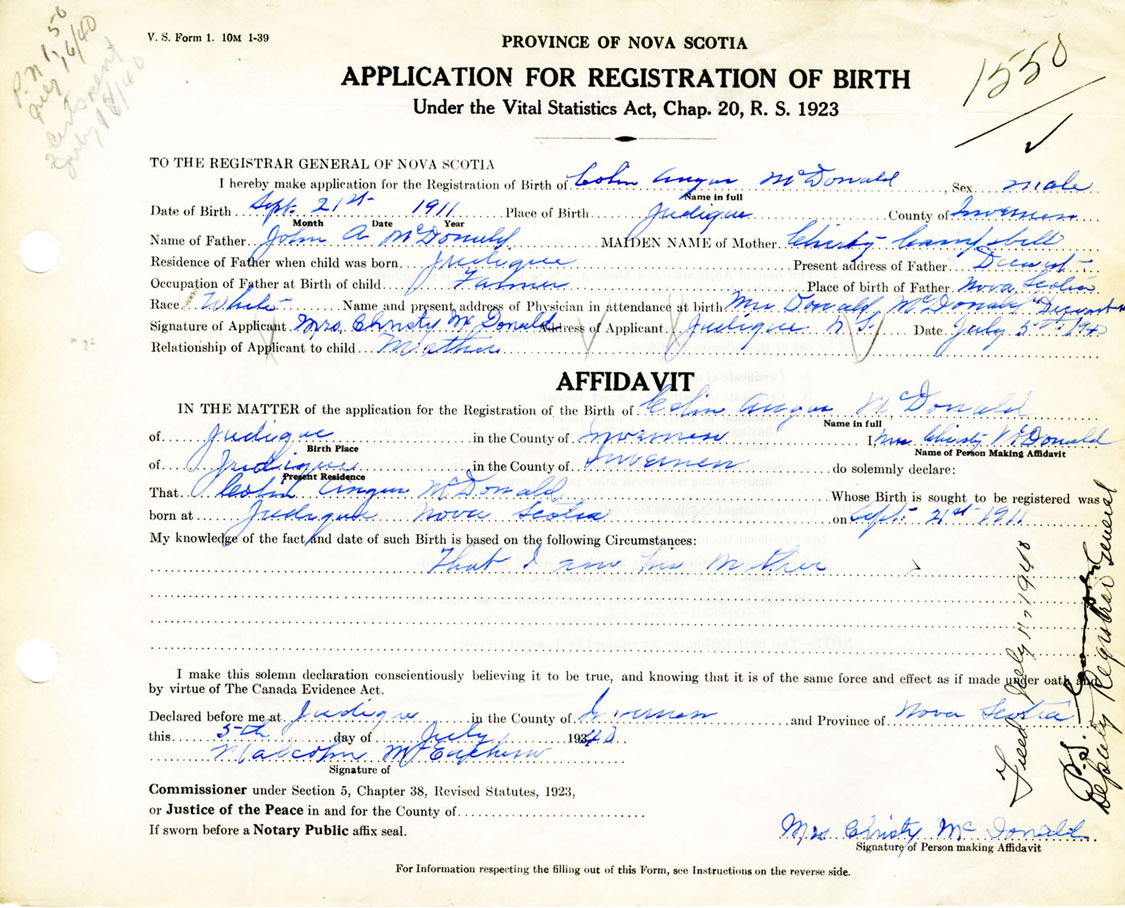 P.N. 1.50
July 16/40
2 Certs sent
July 18/40
V. S. Form 1. 10M 1-39
PROVINCE OF NOVA SCOTIA
1550
APPLICATION FOR REGISTRATION OF BIRTH
Under the Vital Statistics Act, Chap. 20, R. S. 1923
TO THE REGISTRAR GENERAL OF NOVA SCOTIA
I hereby make application for the Registration of Birth of Colin Angus McDonald, Sex male
Name in full
Date of Birth Sept. 21st 1911 Place of Birth Judique County of Inverness
Month Date Year
Name of Father John A McDonald MAIDEN NAME of Mother Christy Campbell
Residence of Father when child was born Judique Present address of Father
Occupation of Father at Birth of child Farmer Place of birth of Father Nova Scotia
Race White Name and present address of Physician in attendance at birth Mrs Donald McDonald
Signature of Applicant Mrs Christy McDonald Address of Applicant Judique N.S. Date July 5th 1940
Relationship of Applicant to child Mother
AFFIDAVIT
IN THE MATTER of the application for the Registration of the Birth of Colin Angus McDonald
Name in full
of Judique in the County of Inverness I, Mrs Christy McDonald
Birth Place Name of Person Making Affidavit
of Judique in the County of Inverness do solemnly declare:
Present Residence
That Colin Angus McDonald Whose Birth is sought to be registered was
born at Judique Nova Scotia on Sept. 21st 1911
My knowledge of the fact and date of such Birth is based on the following Circumstances:
That I am his Mother
I make this solemn declaration conscientiously believing it to be true, and knowing that it is of the same force and effect as if made under oath and
by virtue of The Canada Evidence Act.
Declared before me at Judique in the County of Inverness and Province of Nova Scotia
this 5th day of July 1940
Malcolm McEachern
Signature of
Commissioner under Section 5, Chapter 38, Revised Statutes, 1923,
or Justice of the Peace in and for the County of
If sworn before a Notary Public affix seal.
Mrs Christy McDonald
Signature of Person making Affidavit
For Information respecting the filling out of this Form, see Instructions on the reverse side.
Filed July 17, 1940
Deputy Registrar General